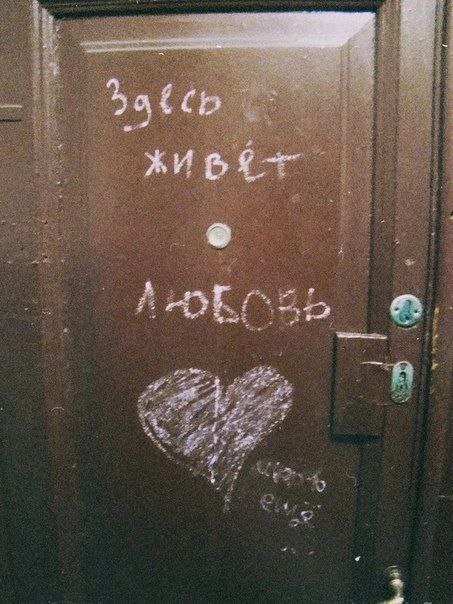 Здесь
живёт
любовь
ещё
...